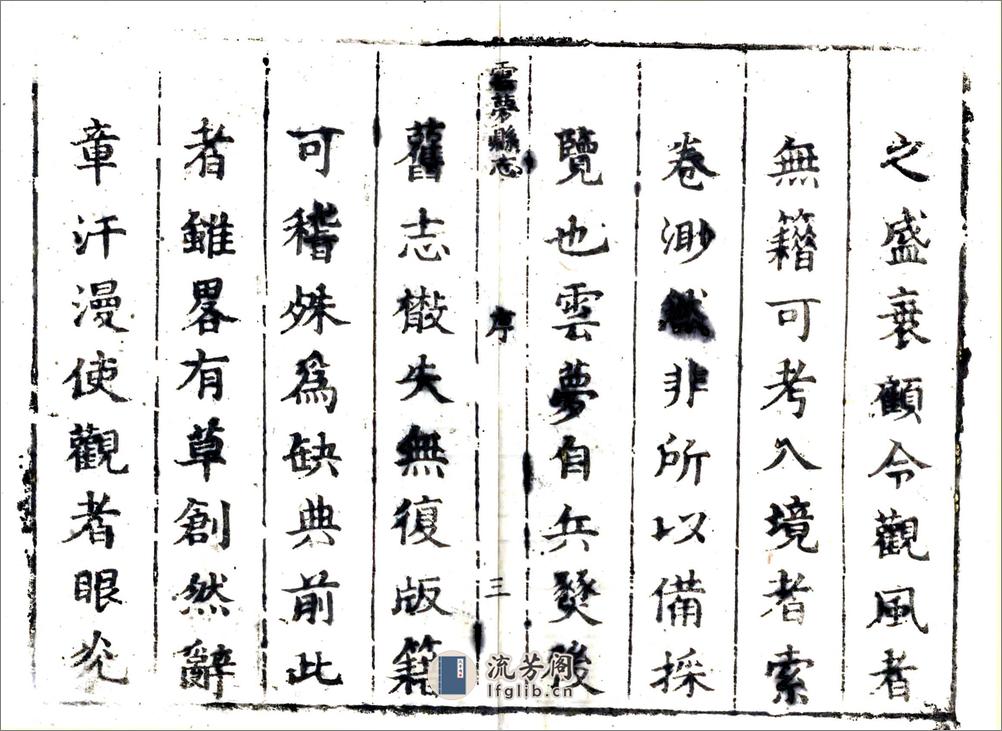 之盛衰顧令觀風者
無籍可考入境者索
卷渺然非所以備採
覽也雲夢自兵燹後
雲夢縣志 序 三
舊志㪚失無復版籍
可稽殊爲缺典前此
者雖畧有草創然辭
章汗漫使觀者眼光
流芳阁
lfglib.cn